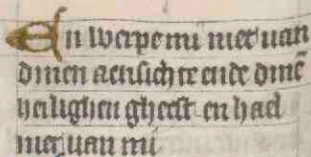 En werpe mi niet uan
dinen aensichte ende dinē
heilighen gheest en hael
niet uan mi